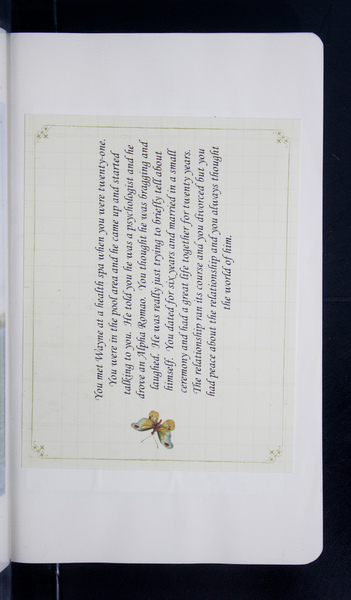 You met Wayne at a health spa when you were twenty-one.
You were in the pool area and he came up and started
talking to you. He told you he was a psychologist and he
drove an Alpha Romao. You thought he was bragging and
laughed. He was really just trying to briefly tell about
himself. You dated for six years and married in a small
ceremony and had a great life together for twenty years.
The relationship ran its course and you divorced but you
had peace about the relationship and you always thought
the world of him.